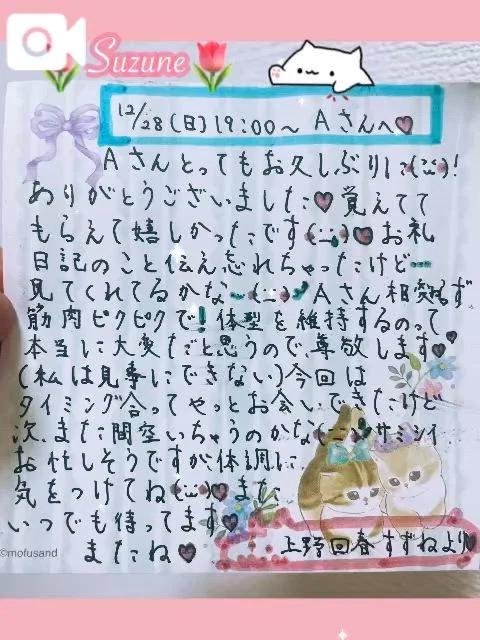 Suzune
12/28(日)19:00〜 Aさんへ♥
Aさんとってもお久しぶりに(¨̮)!
ありがとうございました♥覚えてて
もらえて嬉しかったです(¨̮)♥お礼
日記のこと伝え忘れちゃったけど…
見てくれてるかな…(¨̮) Aさん相変らず
筋肉ピクピクで!体型を維持するのって
本当に大変だと思うので、尊敬します♥
(私は見事にできない)今回は
タイミング合ってやっとお会いできたけど
次、また間空いちゃうのかな(¨̮)サミシイ
お忙しそうですが、体調に
気をつけてね(¨̮)♥また
いつでも待ってます♥
©mofusand
またね♥
上野回春 すずねより♥